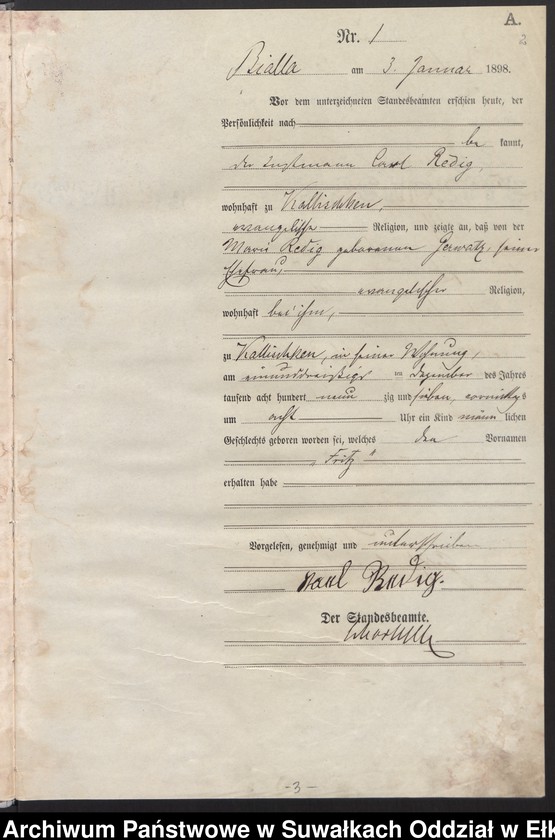 A.
2
Nr. 1
Bialla am 3. Januar 1898.
Vor dem unterzeichneten Standesbeamten erschien heute, der
Persönlichkeit nach
be kannt,
der Instmann Carl Redig,
wohnhaft zu Kallischken,
evangelische Religion, und zeigte an, daß von der
Marie Redig geborenen Gerwatz, seiner
Ehefrau,
evangelischer Religion,
wohnhaft bei ihm,
zu Kallischken, in seiner Wohnung,
am einunddreißigsten Dezember des Jahres
tausend acht hundert neun zig und sieben, vormittags
um acht Uhr ein Kind männ lichen
Geschlechts geboren worden sei, welches den Vornamen
„Fritz"
erhalten habe
Vorgelesen, genehmigt und unterschrieben
Karl Redig.
Der Standesbeamte.
- 3 -
Archiwum Państwowe w Suwałkach Oddział w Ełk